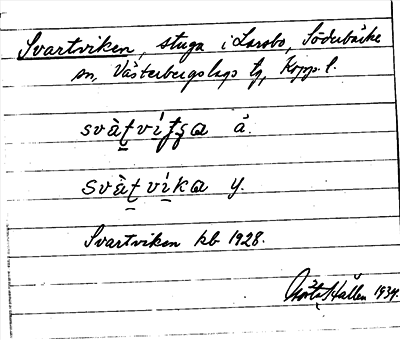 Svartviken, stuga i Larsbo, Söderbärke
sn, Västerbergslags tg, Kopp. l.
svàt̠vi̠tʂa å.
svàt̠vi̠ka y.
Svartviken kb 1928.
Hallén 1934.